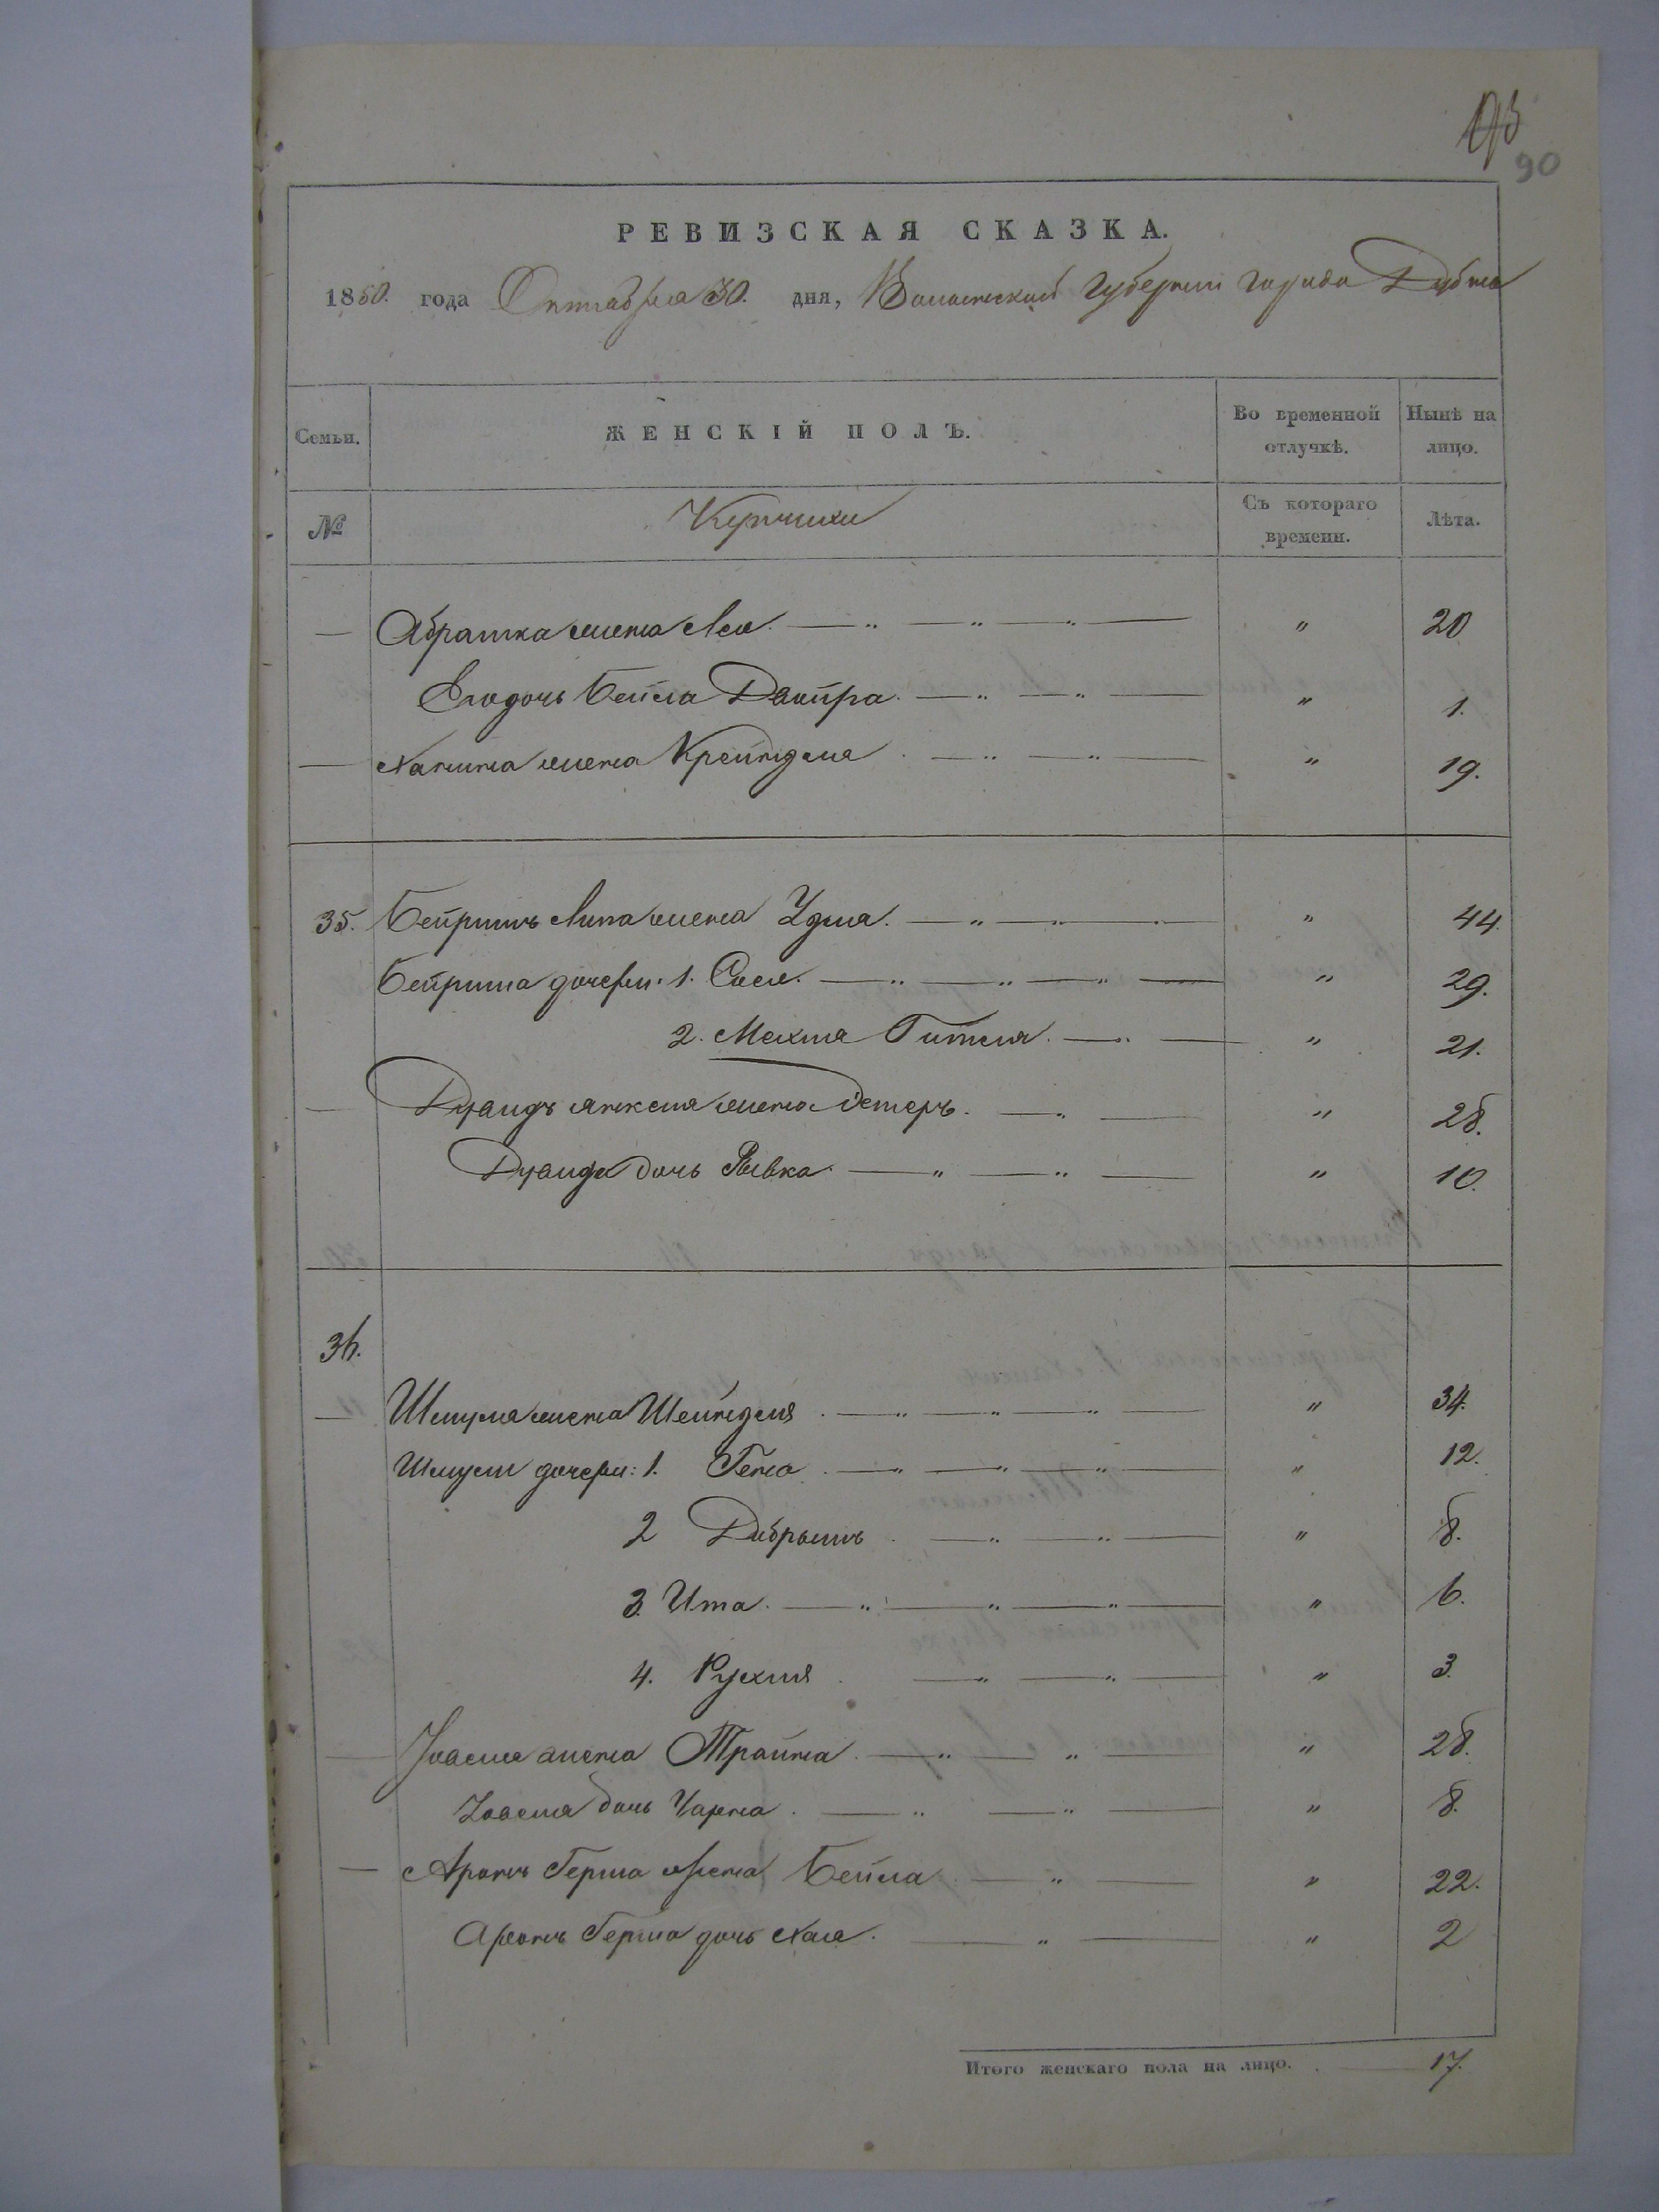 90
РЕВИЗСКАЯ СКАЗКА.
1850. года Октября 30. дня, Волынской Губернии города Дубна
Семьи. ЖЕНСКІЙ ПОЛЪ. Во временной отлучкѣ. Нынѣ на лицо.
№ Купчихи Съ котораго времени. Лѣта.
— Абрамка жена Лея. — „ — „ — „ — „ 20
Его дочь Бейла Двойра. — „ — „ — „ 1.
— Ханина жена Крейндля — „ — „ — „ 19.
35. Бейришъ Липа жена Удля. — „ — „ — „ 44.
Бейриша дочери: 1. Сося. — „ — „ — „ — „ 29.
2. Махля Гителя. — „ — „ 21.
— жена Эстеръ. — „ — „ 28.
дочь Рывка — „ — „ — „ 10.
36.
— Шмуля жена Шейндля — „ — „ — „ — „ 34.
Шмуля дочери: 1. Геня — „ — „ — „ — „ 12.
2 Добрышъ — „ — „ — „ 8.
3. Ита. — „ — „ — „ — „ 6.
4. Рухля — „ — „ — „ 3.
— жена Трайна. — „ — „ — „ 28.
дочь Чарна. — „ — „ — „ 8.
— Аронъ Герша жена Бейла — „ — „ 22.
Аронъ Герша дочь Хая. — „ — „ 2
Итого женскаго пола на лицо. — 17.